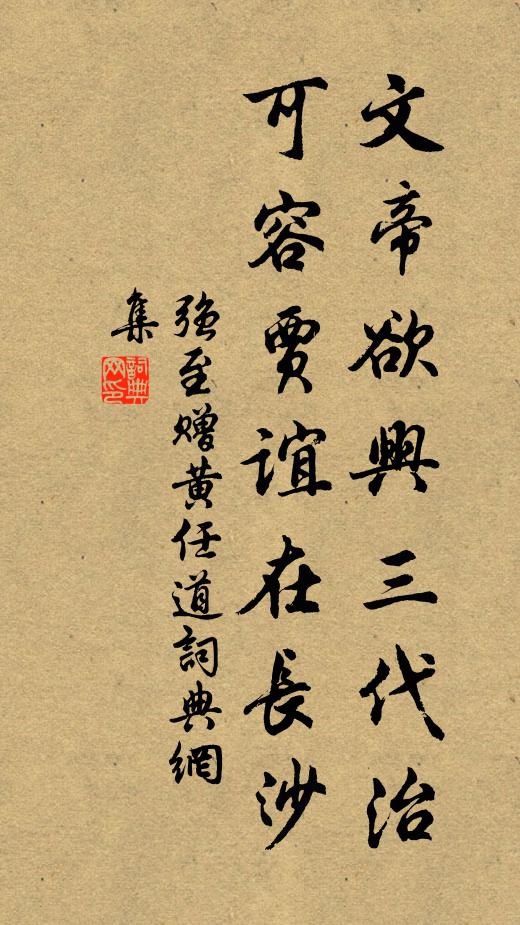 文帝欲興三代治
可容賈誼在長沙
强至贈黄任道詞典網
集
詞典
网印